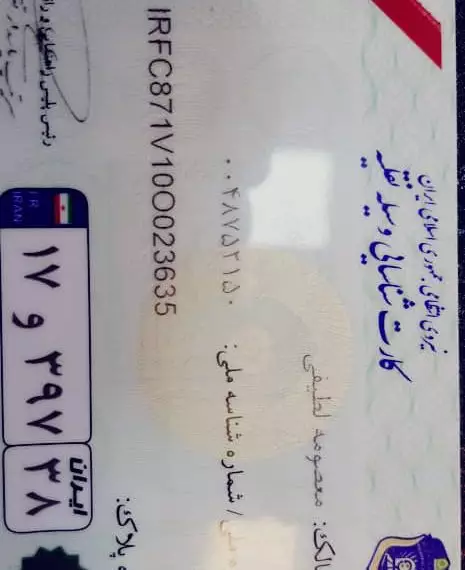 نیروی انتظامی جمهوری اسلامی ایران
کارت شناسایی وسیله نقلیه
مالک: معصومه لطیفی
ملی / شماره شناسه ملی: ۰۰۴۸۷۵۲۱۵۰
IRFC871V10O023635
پلاک:
I.R.
IRAN
۱۷ و ۳۹۷
ایران
۳۸
رئیس پلیس راهنمایی و